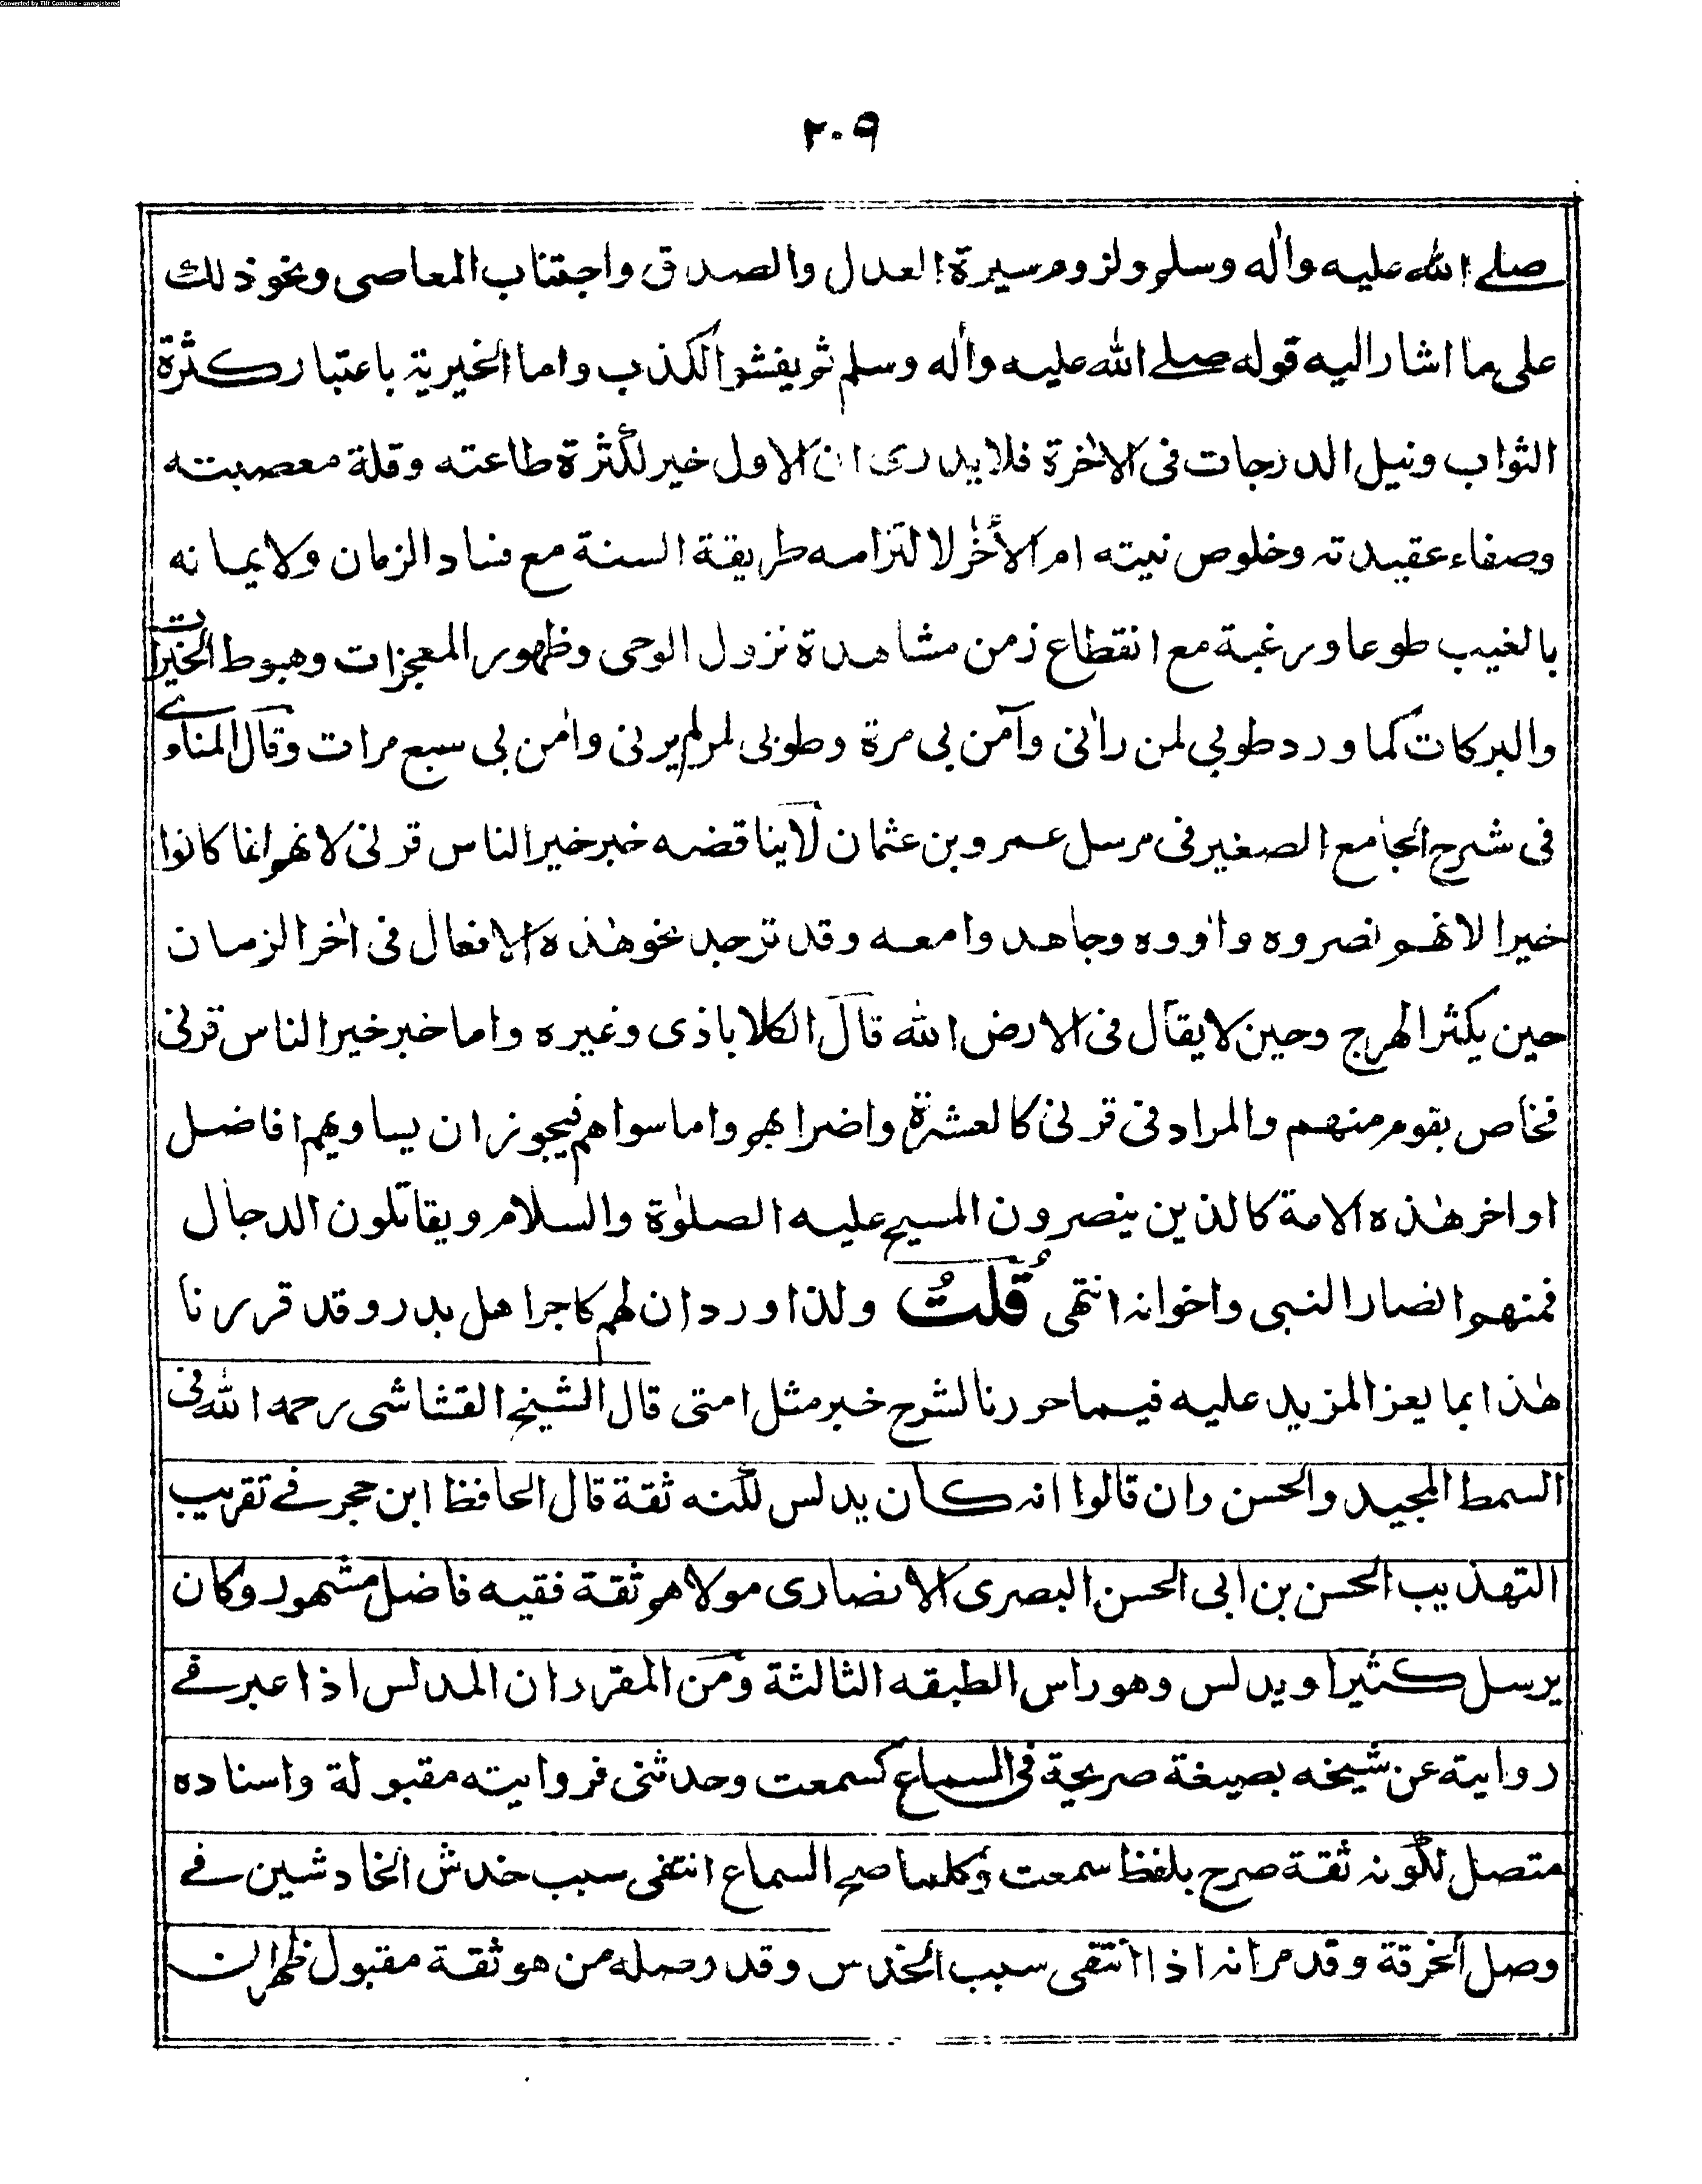 Converted by Tiff Combine - unregistered
٢٠٩
صلے الله عليه واٰله وسلم ولزوم سيرة العدل والصدق واجتناب المعاصى ونحوذلك
على ما اشار اليه قوله صلے الله عليه واٰله وسلم ثم يفشو الكذب واما الخيرية باعتبار كثرة
الثواب ونيل الدرجات فى الاٰخرة فلا يدرى ان الاول خير لكثرة طاعته وقلة معصيته
وصفاء عقيدته وخلوص نيته ام الاٰخر لالتزامه طريقة السنة مع فساد الزمان ولايمانه
بالغيب طوعا ورغبة مع انقطاع زمن مشاهدة نزول الوحى وظهور المعجزات وهبوط الخيرات
والبركات كما ورد طوبي لمن راٰنى واٰمن بى مرة وطوبى لمن لم يرنى واٰمن بى سبع مرات وقال المناوے
فى شرح الجامع الصغير فى مرسل عمرو بن عثمان لاينا قضه خبر خير الناس قرنى لانهم انما كانوا
خيرا لانهم نصروه واٰووه وجاهدوا معه وقد توجد نحو هٰذه الافعال فى اٰخر الزمان
حين يكثر الهرج وحين لايقال فى الارض الله قال الكلاباذى وغيره واما خبر خير الناس قرنى
فخاص بقوم منهم والمراد فى قرنى كالعشرة واضرابهم واما سواهم فيجوز ان يساويهم افاضل
اواخر هٰذه الامة كالذين ينصرون المسيح عليه الصلوٰة والسلام ويقاتلون الدجال
فمنهم انصار النبى واخوانه انتهى قُلتُ ولذا ورد ان لهم كاجر اهل بدر وقد قررنا
هٰذا بما يعز المزيد عليه فيما حررنا لشرح خبر مثل امتى قال الشيخ القشاشى رحمه الله فى
السمط المجيد والحسن وان قالوا انه كان يدلس لكنه ثقة قال الحافظ ابن حجر فے تقريب
التهذيب الحسن بن ابى الحسن البصرى الانصارى مولاهم ثقة فقيه فاضل مشهور وكان
يرسل كثيرا ويدلس وهو راس الطبقه الثالثة ومن المقرر ان المدلس اذا عبر فے
رواية عن شيخه بصيغة صريحة فى السماع كسمعت وحدثنى فروايته مقبولة واسناده
متصل لكونه ثقة صرح بلفظ سمعت وكلما صح السماع انتفى سبب خدش الخادشين فے
وصل الخرقة وقد مر انه اذا انتفى سبب الخدس وقد وصله من هو ثقة مقبول ظهر ان